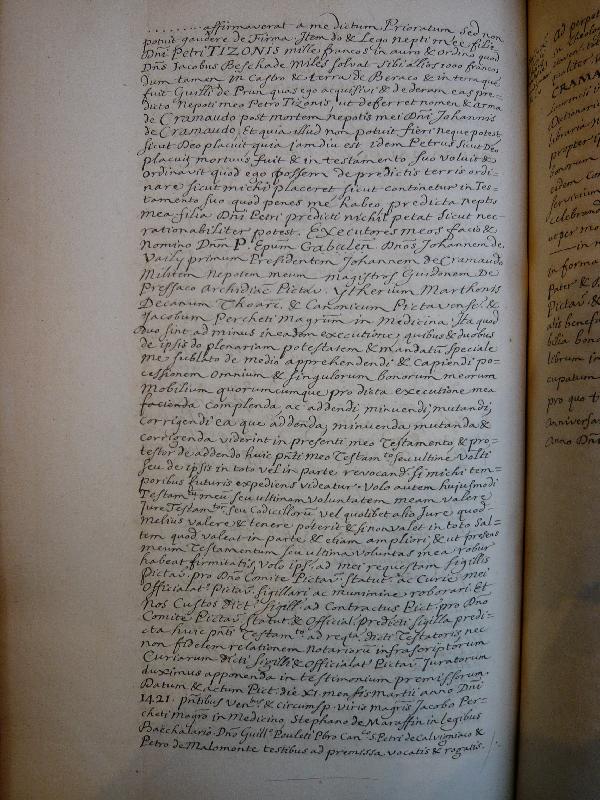 ........ affirmaverat a me dictum Prioratum sed non
potuit gaudere de Firma. Item do & Lego nepti mee filie
Dni Petri TIZONIS mille francos in auro & ordino quod
Dns Jacobus Beschade Miles solvat sibi alios 1000 francos
dum tamen in Castro & terra de Beraco & in terra que
fuit Guilli de Prun quas ego acquisivi & dederam eas pre-
dicto Nepoti meo Petro Tizonis, ut deferret nomen & arma
de Cramaudo post mortem nepotis mei Dni Johannis
de Cramaudo. Et quia illud non potuit fieri neque potest
sicut Deo placuit quia jamdiu est idem Petrus sicut Deo
placuit mortuus fuit & in testamento suo voluit &
ordinavit quod ego possem de predictis terris ordi-
nare sicut michi placeret sicut continetur in Tes-
tamento suo quod penes me habeo predicta neptis
mea filia Dni Petri predicti nichil petat sicut nec
rationabiliter potest. Executores meos facio &
nomino Dnm P. Epum Gabalen Dnos Johannem de
Vaily primum Presidentem Johannem de Cramaudo
Militem Nepotem meum magistros Guidonem De
Pressaco Archidiac Pictav. Ytherium Marthonis
Decanum Thoarc. & Canonicum Pictavensem &
Jacobum Percheti Magrum in Medicina. Ita quod
duo sint ad minus in eadem executione, quibus & duobus
de ipsis do plenariam potestatem & mandatu speciale
me sublato de medio apprehendendi & capiendi po-
cessionem omnium & singulorum bonorum meorum
Mobilium quorumcumque pro dicta executione mea
facienda complenda ac addendi, minuendi, mutandi,
corrigendi ea que addenda, minuenda mutanda &
corrigenda viderint in presenti meo Testamento & pro-
testor de addendo huic pnti meo Testamto seu ultime Volti
seu de ipsis in toto vel in parte revocand. si michi tem-
poribus futuris expediens videatur. Volo autem hujusmodi
Testamtu meu seu ultimam voluntatem meam valere
Jure Testamtor seu Codicilloru vel quolibet alio Jure quod
melius valere & tenere poterit & si non valet in toto Sal-
tem quod valeat in parte & etiam ampliori & ut presens
meum Testamentum seu ultima voluntas mea robur
habeat firmitatis, Volo ips. ad mei requestam sigillis
Pictav. pro Dno Comite Pictav. Statut. ac Curie mei
Officialat. Pictav. sigillari ac munimine roborari. Et
Nos Custos dict. sigill. ad Contractus Pict. pro Dno
Comite Pictav. Statut. & Official. predicti sigilla predi-
cta huic pnti Testamto ad reqta. dicti Testatoris, nec
non fidelem relationem notarioru infrascriptorum
Curiarum dicti sigilli & Officialat Pictav. Juratorum
duximus apponenda in testimonium premissorum.
Datum & actum Pict. die XI. mensis Martii anno Dni
1421. pntibus Venbus & circumsp. viris magris Jacobo Per-
cheti magro in Medicina, Stephano de Maraffin in legibus
Bacchalario Dno Guillo Pouleti Pbro Canco S. Petri de Calvigniaco &
Petro de Malomonte testibus ad premissa vocatis & rogatis.